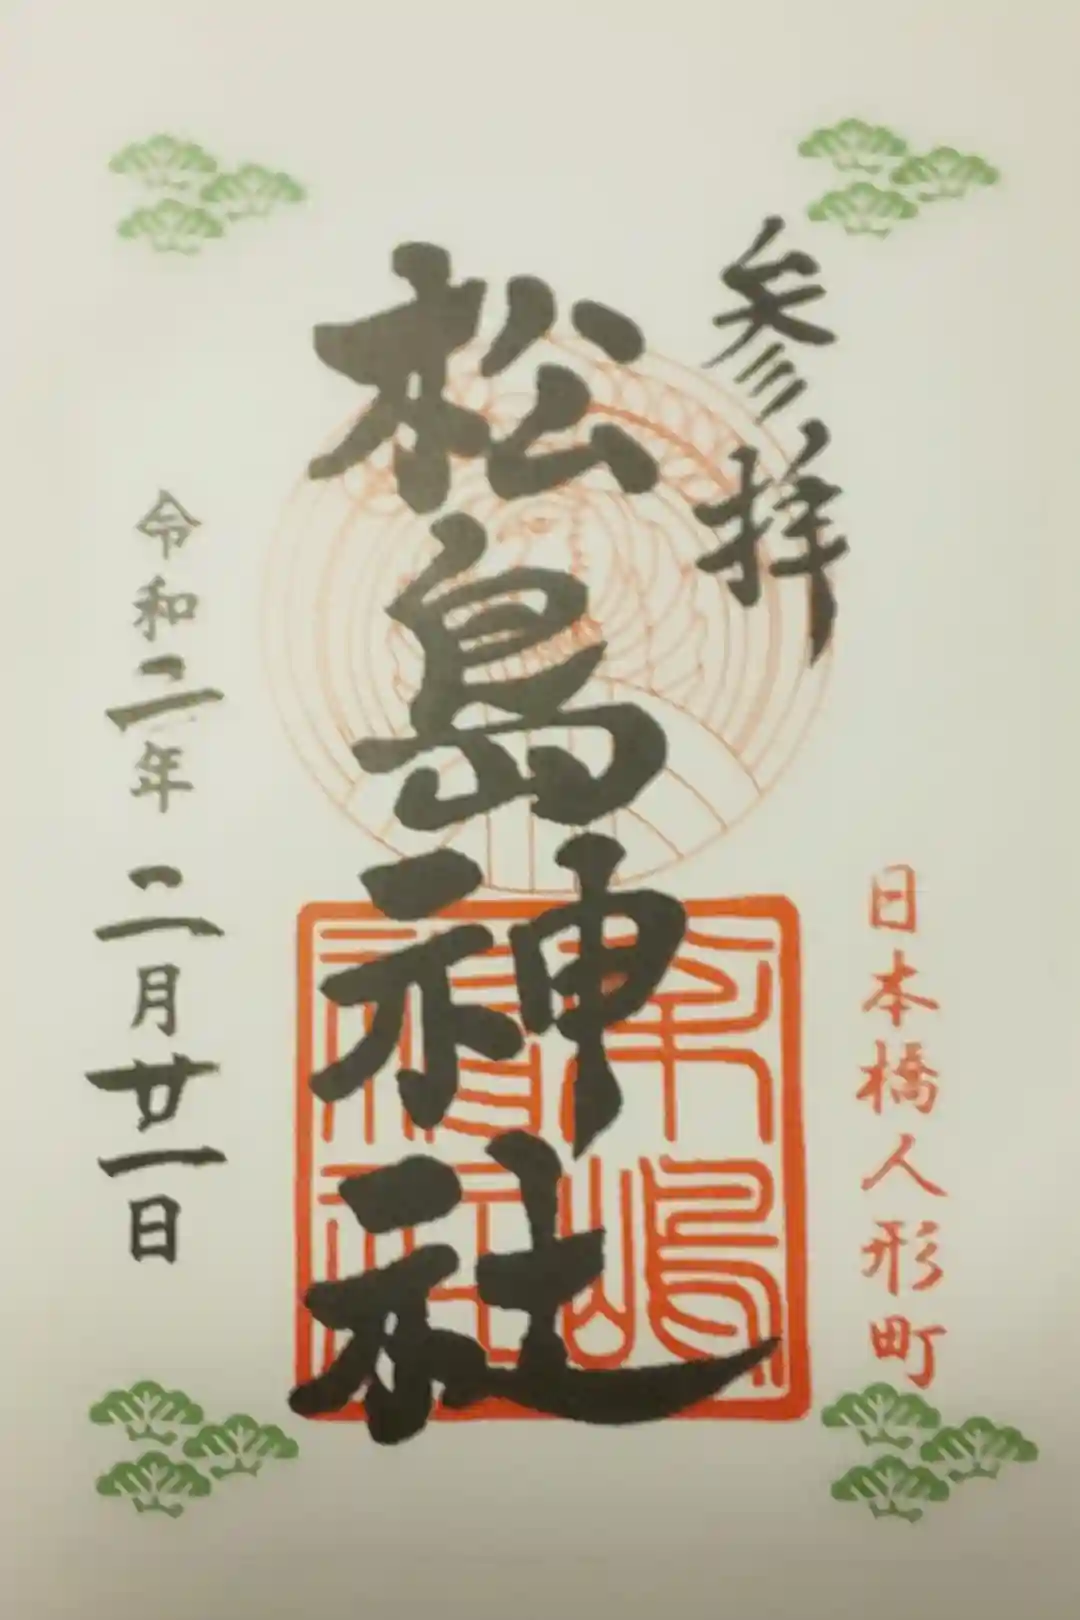 参拝
日本橋人形町
松島神社
令和二年 二月廿一日